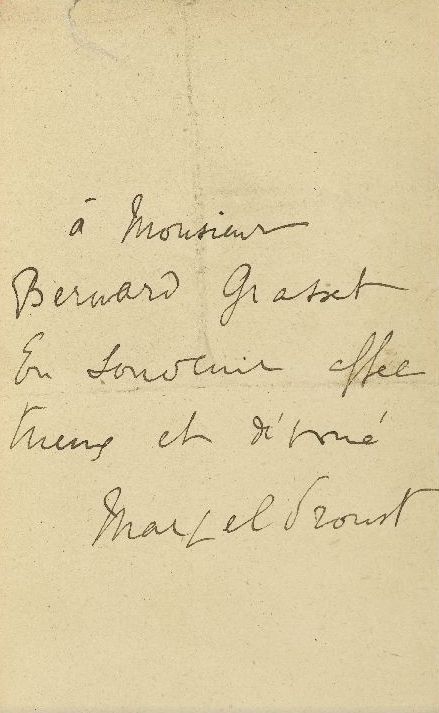 à Monsieur
Bernard Grasset
En souvenir affec
tueux et dévoué
Marcel Proust